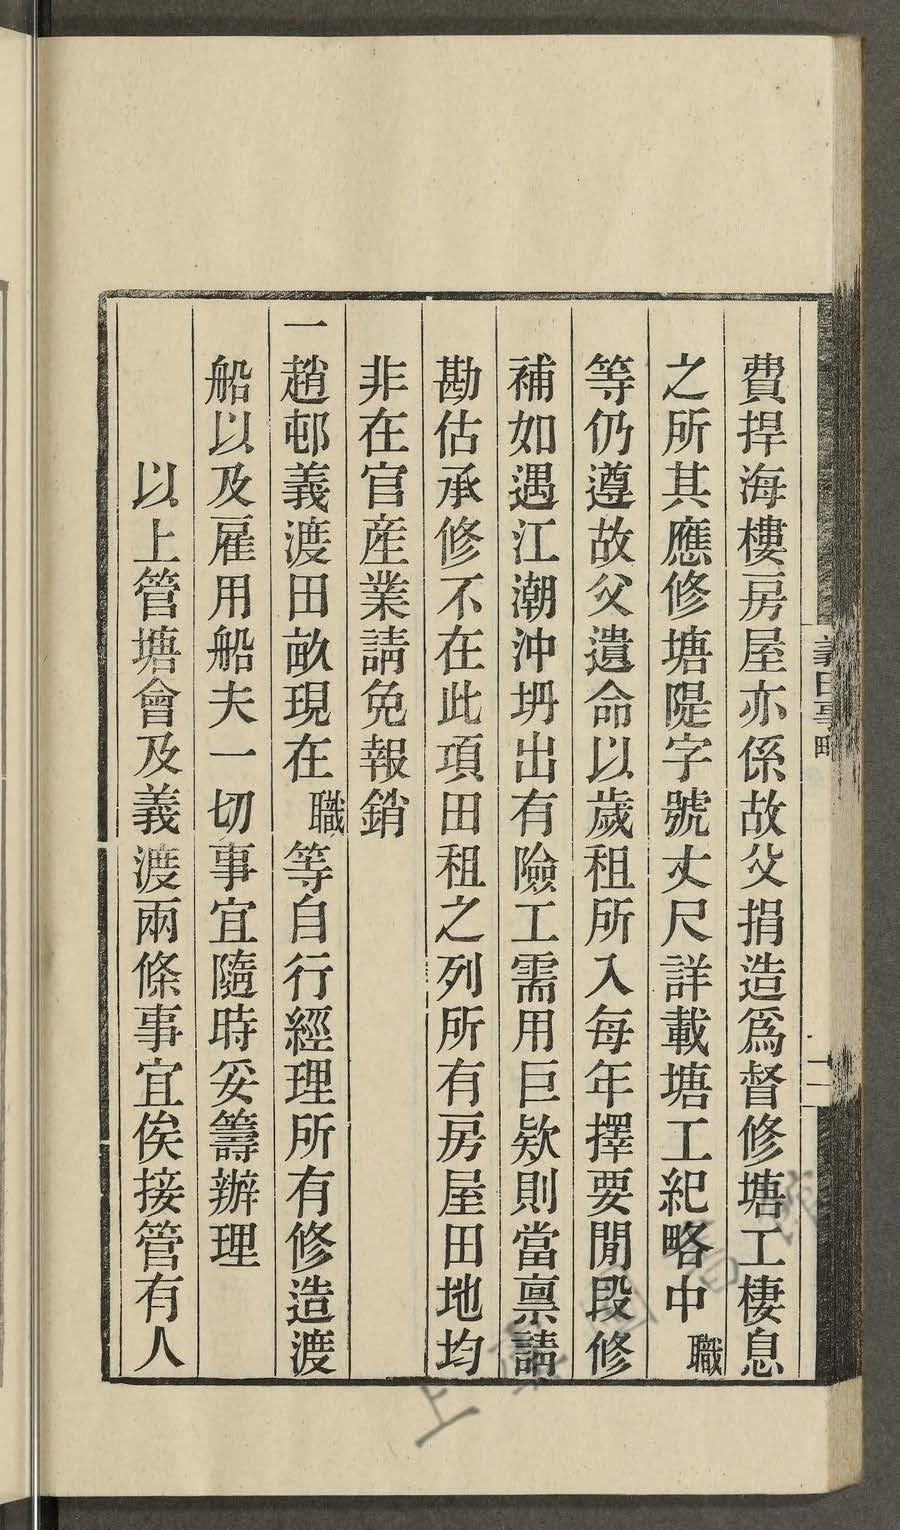 費捍海樓房屋亦係故父捐造爲督修塘工棲息
之所其應修塘隄字號丈尺詳載塘工紀略中職
等仍遵故父遺命以歲租所入每年擇要閒段修
補如遇江潮沖坍出有險工需用巨欵則當禀請
勘估承修不在此項田租之列所有房屋田地均
非在官産業請免報銷
一趙邨義渡田畝現在職等自行經理所有修造渡
船以及雇用船夫一切事宜隨時妥籌辦理
以上管塘會及義渡兩條事宜俟接管有人
義田事略